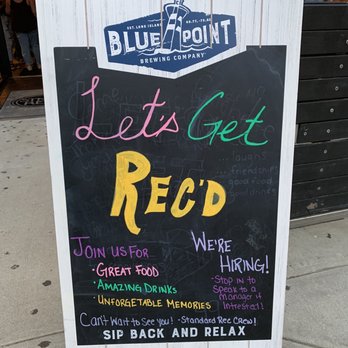 EST. LONG ISLAND
BLUE POINT
BREWING COMPANY
Let's Get
REC'D
laughs
... friendship
good food
good drinks
JOIN US FOR...
· GREAT FOOD
· AMAZING DRINKS
· UNFORGETABLE MEMORIES
WE'RE
HIRING!
· Stop in to
speak to a
manager if
interested!
Can't Wait to See You! · Standard Rec Crew!
SIP BACK AND RELAX